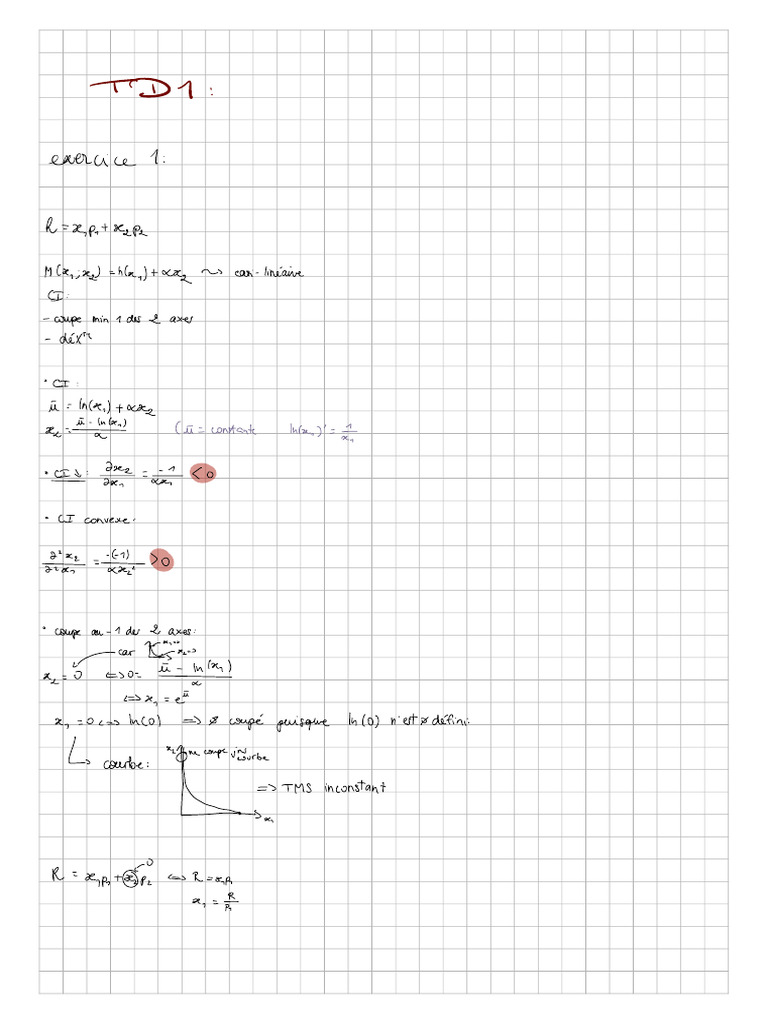 TD1:
exercice 1:
R = x₁p₁ + x₂p₂
M(x₁;x₂) = h(x₁) + αx₂ ⤳ can-linéaire
CI:
- coupe min 1 des 2 axes
- déX
• CI:
ū = ln(x₁) + αx₂
x₂ = (ū - ln(x₁))/α (ū = constante ln(x₁)' = 1/x₁
• CI ↓: ∂x₂/∂x₁ = -1/αx₁ < 0
• CI convexe:
∂²x₂/∂²x₁ = -(-1)/αx₂² > 0
• coupe au -1 des 2 axes:
car x₁=0 x₂=0
x₂ = 0 ⇔ 0 = (ū - ln(x₁))/α
⇔ x₁ = e^ū
x₁ = 0 ⇔ ln(0) ⇒ ∅ coupé puisque ln(0) n'est ∅ défini
↳ courbe: x₂ ne coupe jms courbe
x₁
⇒ TMS inconstant
R = x₁p₁ + x₂p₂ 0 ⇔ R = x₁p₁
x₁ = R/p₁